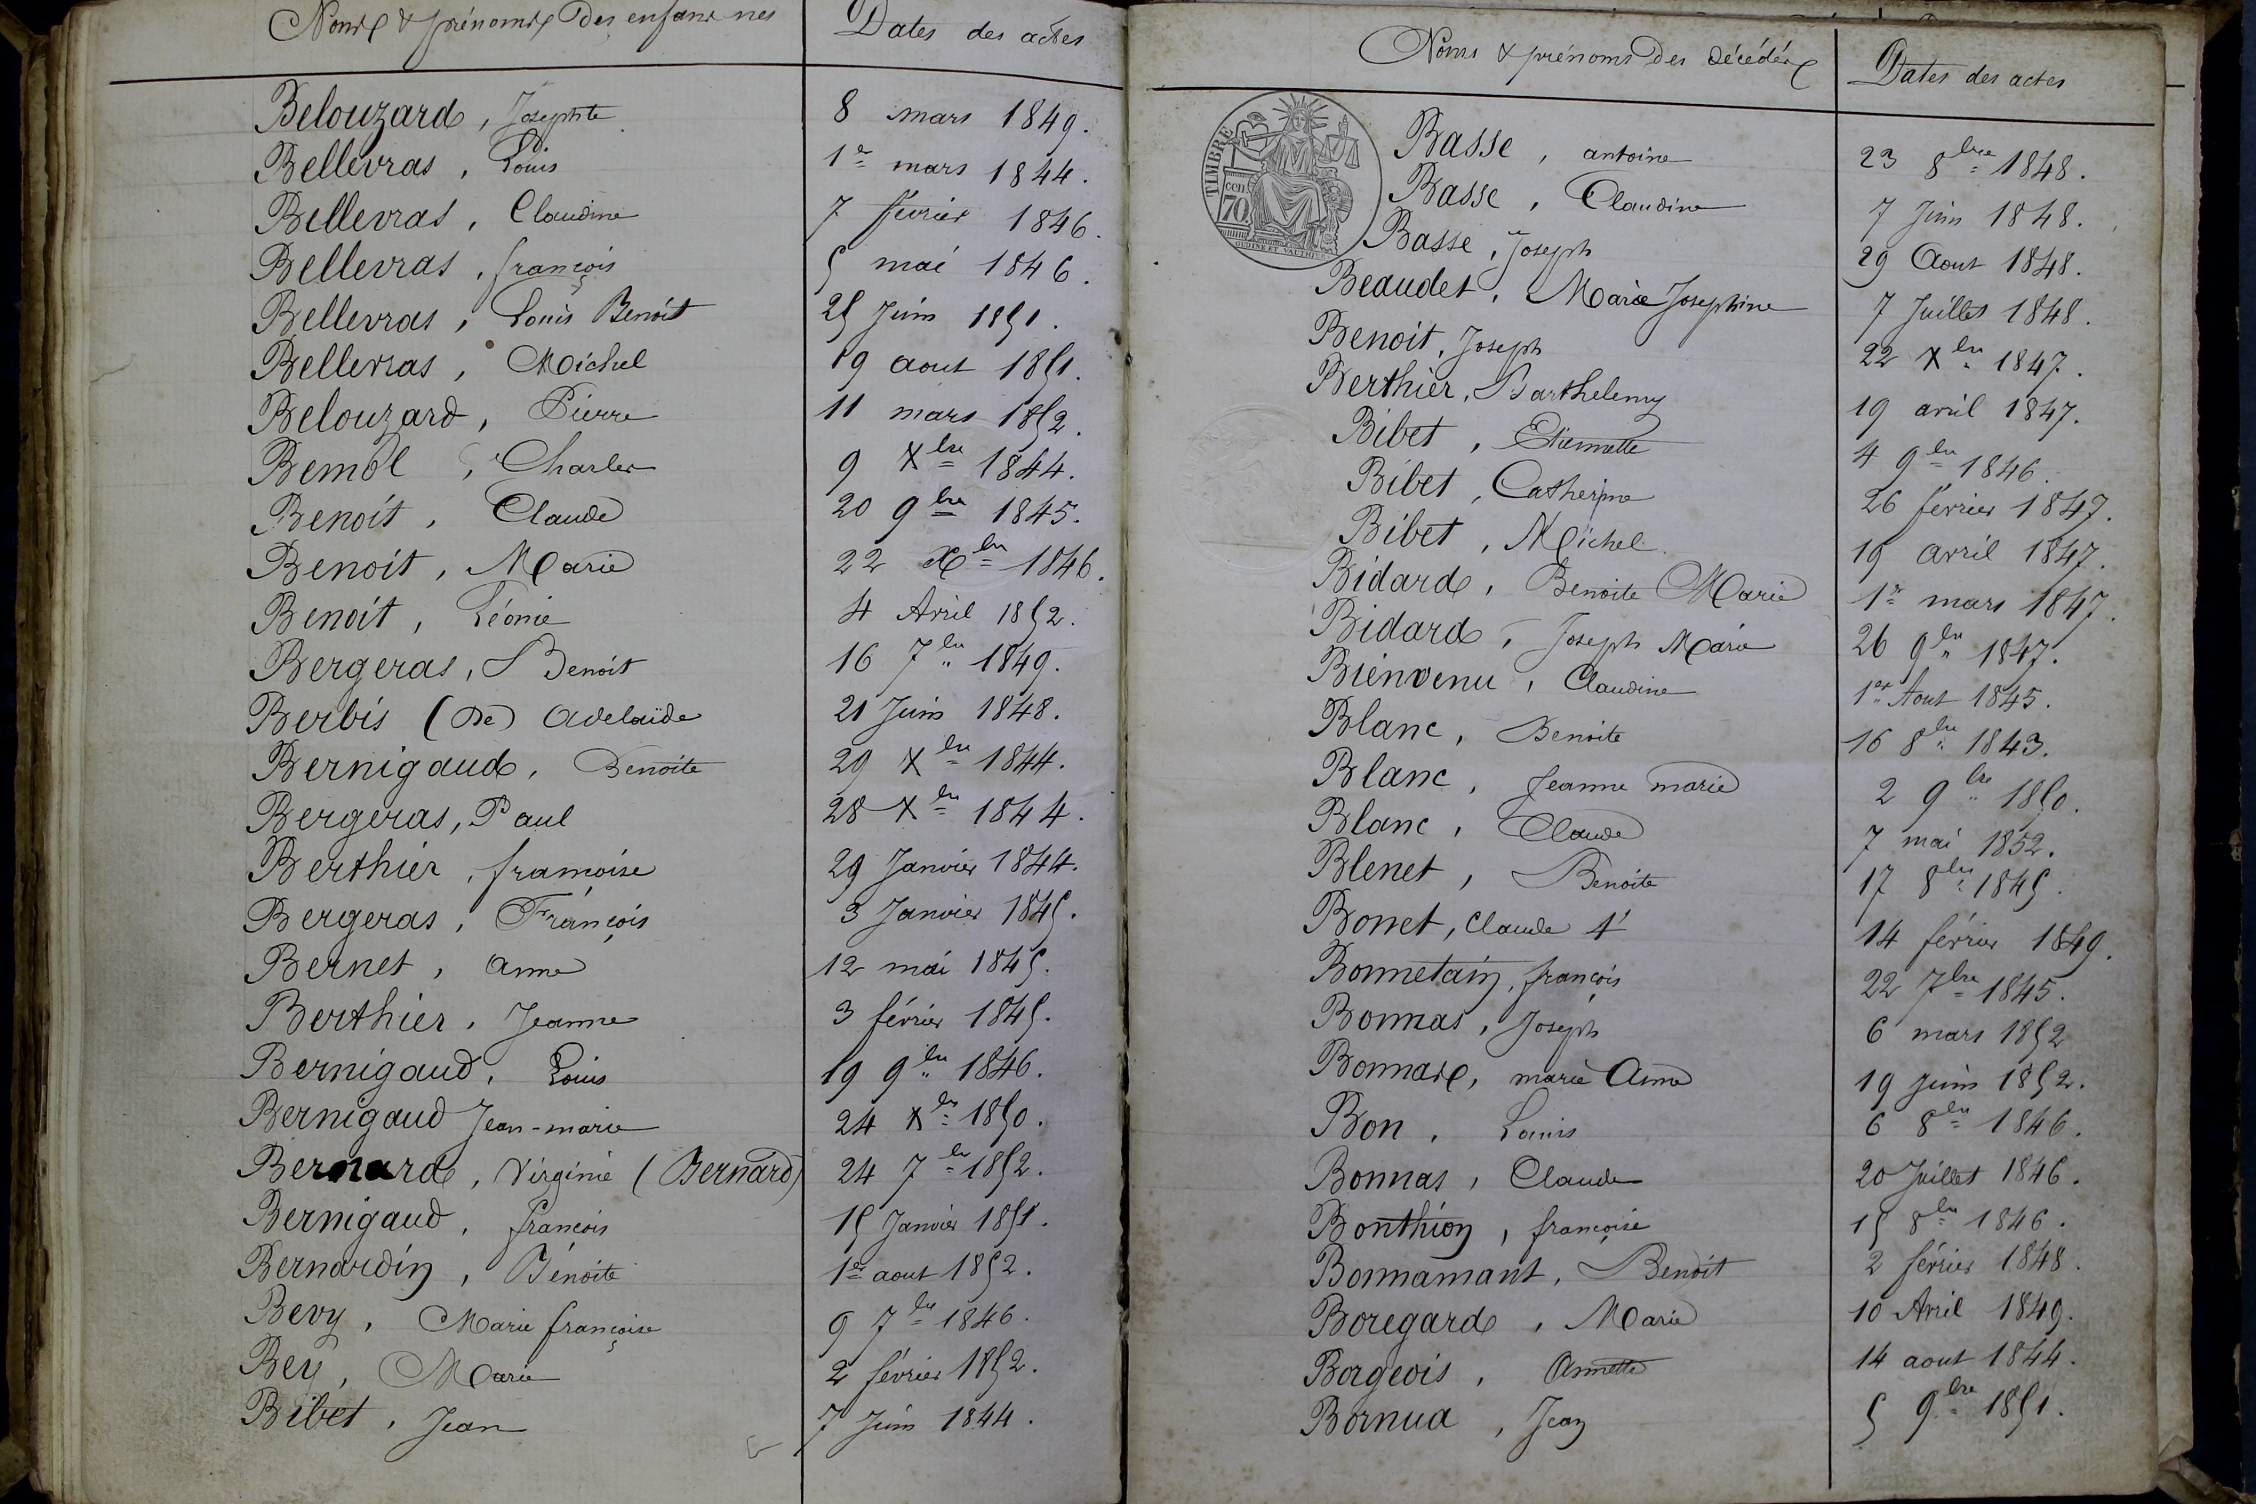 Noms & prénoms Des enfans nés
Dates des actes
Belouzard, Josephte 8 mars 1849.
Bellevras, Louis 1er mars 1844.
Bellevras, Claudine 7 février 1846.
Bellevras, françois 5 mai 1846.
Bellevras, Louis Benoit 25 Juin 1851.
Bellevras, Michel 19 aout 1851.
Belouzard, Pierre 11 mars 1852.
Bemol, Charles 9 Xbre 1844.
Benoit, Claude 20 9bre 1845.
Benoit, Marie 22 Xbre 1846.
Benoit, Léonie 4 Avril 1852.
Bergeras, Benoit 16 7bre 1849.
Berbis (De) Adelaïde 21 Juin 1848.
Bernigaud, Benoite 29 Xbre 1844.
Bergeras, Paul 28 Xbre 1844.
Berthier, françoise 29 Janvier 1844.
Bergeras, François 3 Janvier 1845.
Bernet, Anne 12 mai 1845.
Berthier, Jeanne 3 février 1845.
Bernigaud, Louis 19 9bre 1846.
Bernigaud Jean-marie 24 Xbre 1850.
Bernard, Virginie (Bernard) 24 7bre 1852.
Bernigaud, francois 15 Janvier 1851.
Bernardin, Bénoite 1er aout 1852.
Bevy, Marie françoise 9 7bre 1846.
Bey, Marie 2 février 1852.
Bibet, Jean 7 Juin 1844.
Noms & prénoms Des Décédés
Dates des actes
TIMBRE
70 cen
OUDINE ET VAUTHIER
Basse, antoine 23 8bre 1848.
Basse, Claudine 7 Juin 1848.
Basse, Joseph 29 Aout 1848.
Beaudet, Marie Josephine 7 Juillet 1848.
Benoit, Joseph 22 Xbre 1847.
Berthier, Barthelemy 19 avril 1847.
Bibet, Etiennette 4 9bre 1846.
Bibet, Catherine 26 février 1847.
Bibet, Michel 19 avril 1847.
Bidard, Benoite Marie 1er mars 1847.
Bidard, Joseph Marie 26 9bre 1847.
Bienvenu, Claudine 1er Aout 1845.
Blanc, Benoite 16 8bre 1843.
Blanc, Jeanne marie 2 9bre 1850.
Blanc, Claude 7 mai 1852.
Blenet, Benoite 17 8bre 1845.
Bonnet, Claude 14 février 1849.
Bonnetain, françois 22 7bre 1845.
Bonnas, Joseph 6 mars 1852
Bonnard, marie Anne 19 Juin 1852.
Bon, Louis 6 8bre 1846.
Bonnas, Claude 20 Juillet 1846.
Bonthion, françoise 15 8bre 1846.
Bonnamant, Benoit 2 février 1848.
Boregard, Marie 10 Avril 1849.
Borgeois, Annette 14 aout 1844.
Bornua, Jean 5 9bre 1851.